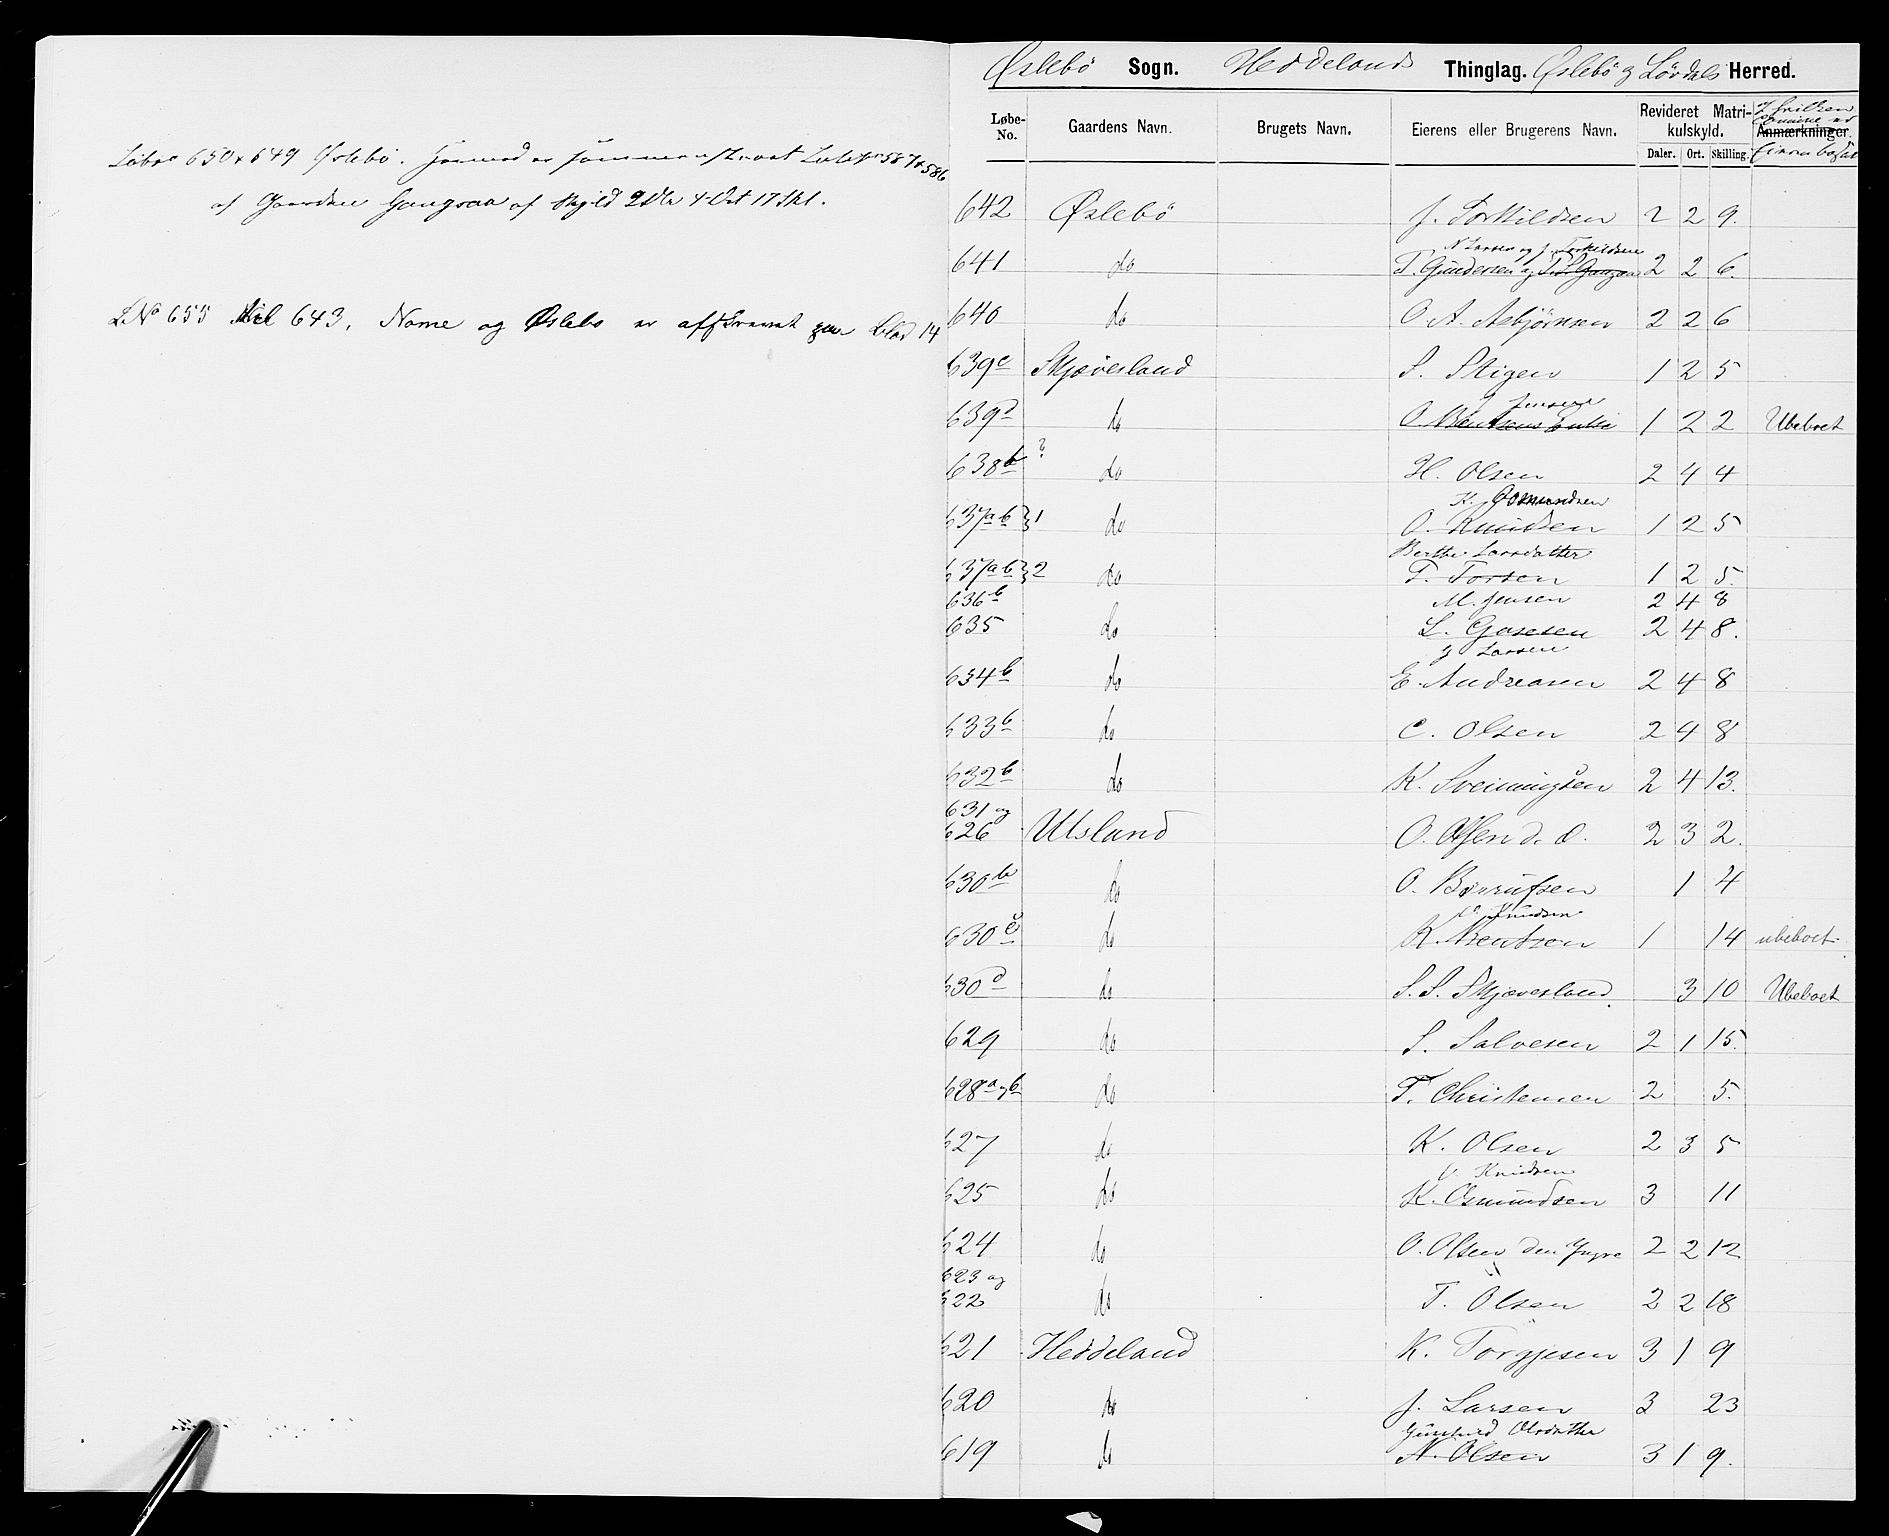 Løbno 650 & 649 Øslebø. Hermed er sammenskrevet Løbeno 587 & 586
af Gaarden Gangsaa af Skyld 2 Dlr 4 Ort 17 Skl.
LNo 655 til 643, Nome og Øslebø er afskrevet paa Blad 14
Øslebö Sogn. Heddelands Thinglag. Øslebö og Løvdals Herred.
Løbe-No. Gaardens Navn. Brugets Navn. Eierens eller Brugerens Navn. Revideret Matrikulskyld. Anmærkninger.
Daler. Ort. Skilling.
642 Øslebö J. Torkildsen 2 2 9.
N Larsen og J. Torkildsen
641 do T. Gundersen og 2 2 6.
640 do O. A. Asbjörnsen 2 2 6
639c Skjævesland S. Stigen 1 2 5
Jensen
639d do O. Bentsens Enke 1 2 2 Ubeboet
638b ? do H. Olsen 2 4 4
K. Osmundsen
637a b } 1 do O. Knudsen 1 2 5
Berthe Larsdatter
637a b } 2 do T. Torsen 1 2 5.
636b M. Jensen 2 4 8
635 do L. Gasesen 2 4 8.
Larsen
634b do E. Andreasen 2 4 8
633b do C. Olsen 2 4 8
632b do K. Svenningsen 2 4 13.
631 og
626 Ulsland O. Olsen d. æ. 2 3 2.
630b do O. Berrufsen 1 4
Knudsen
630c do K. Bentsen 1 14 ubeboet
630d do S. S. Skjævesland. 3 10 Ubeboet
629 do S. Salvesen 2 1 15.
628a og b do T. Christensen 2 5.
627 do K. Olsen 2 3 5
O Knudsen
625 do K. Osmundsen 3 11
624 do O. Olsen den Yngre 2 2 12
623 og
622 do T. Olsen 2 2 18
621 Heddeland K. Torgjesen 3 1 9
620 do J. Larsen 3 23
Gunhild Olsdatter
619 do N. Olsen 3 1 9.